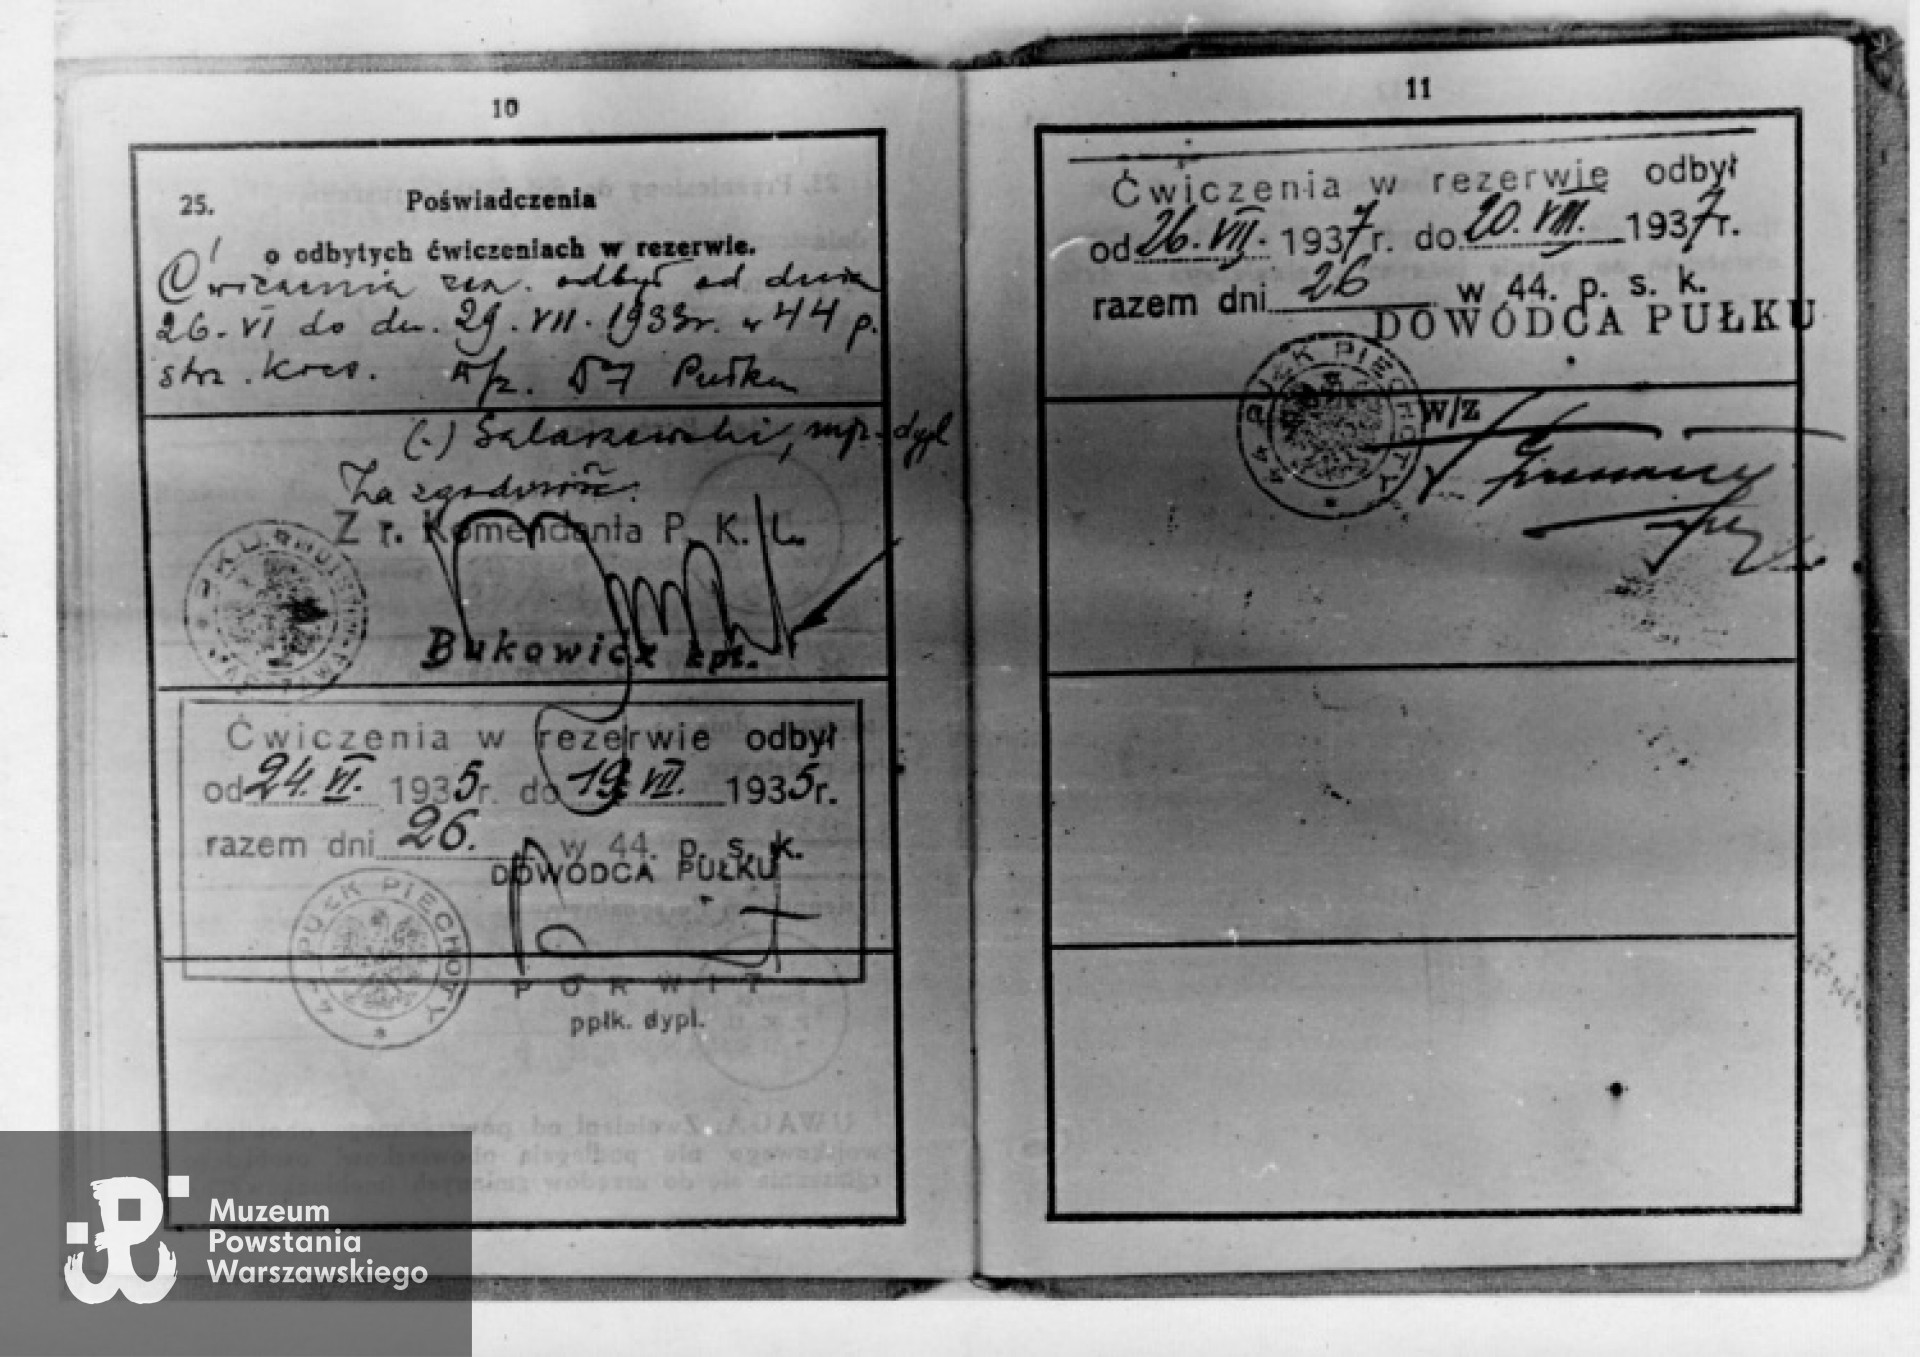 10
25. Poświadczenia
o odbytych ćwiczeniach w rezerwie.
Ćwiczenia rez. odbył od dnia
26. VI do dn. 29. VII. 1933r. w 44 p.
strz. Kres. Pułku
(-) mjr. dypl
Za zgodność:
Z r. Komendanta P. K. U.
P.K.U.
Bukowicz kpt.
Ćwiczenia w rezerwie odbył
od 24. VI. 1935r. do 19. VII. 1935r.
razem dni 26. w 44. p. s. k.
DOWÓDCA PUŁKU
44 PUŁK PIECHOTY
PORWIT
ppłk. dypl.
11
Ćwiczenia w rezerwie odbył
od 26. VII. 1937r. do 20. VIII. 1937r.
razem dni 26 w 44. p. s. k.
DOWÓDCA PUŁKU
44 PUŁK PIECHOTY
W/Z
Muzeum
Powstania
Warszawskiego